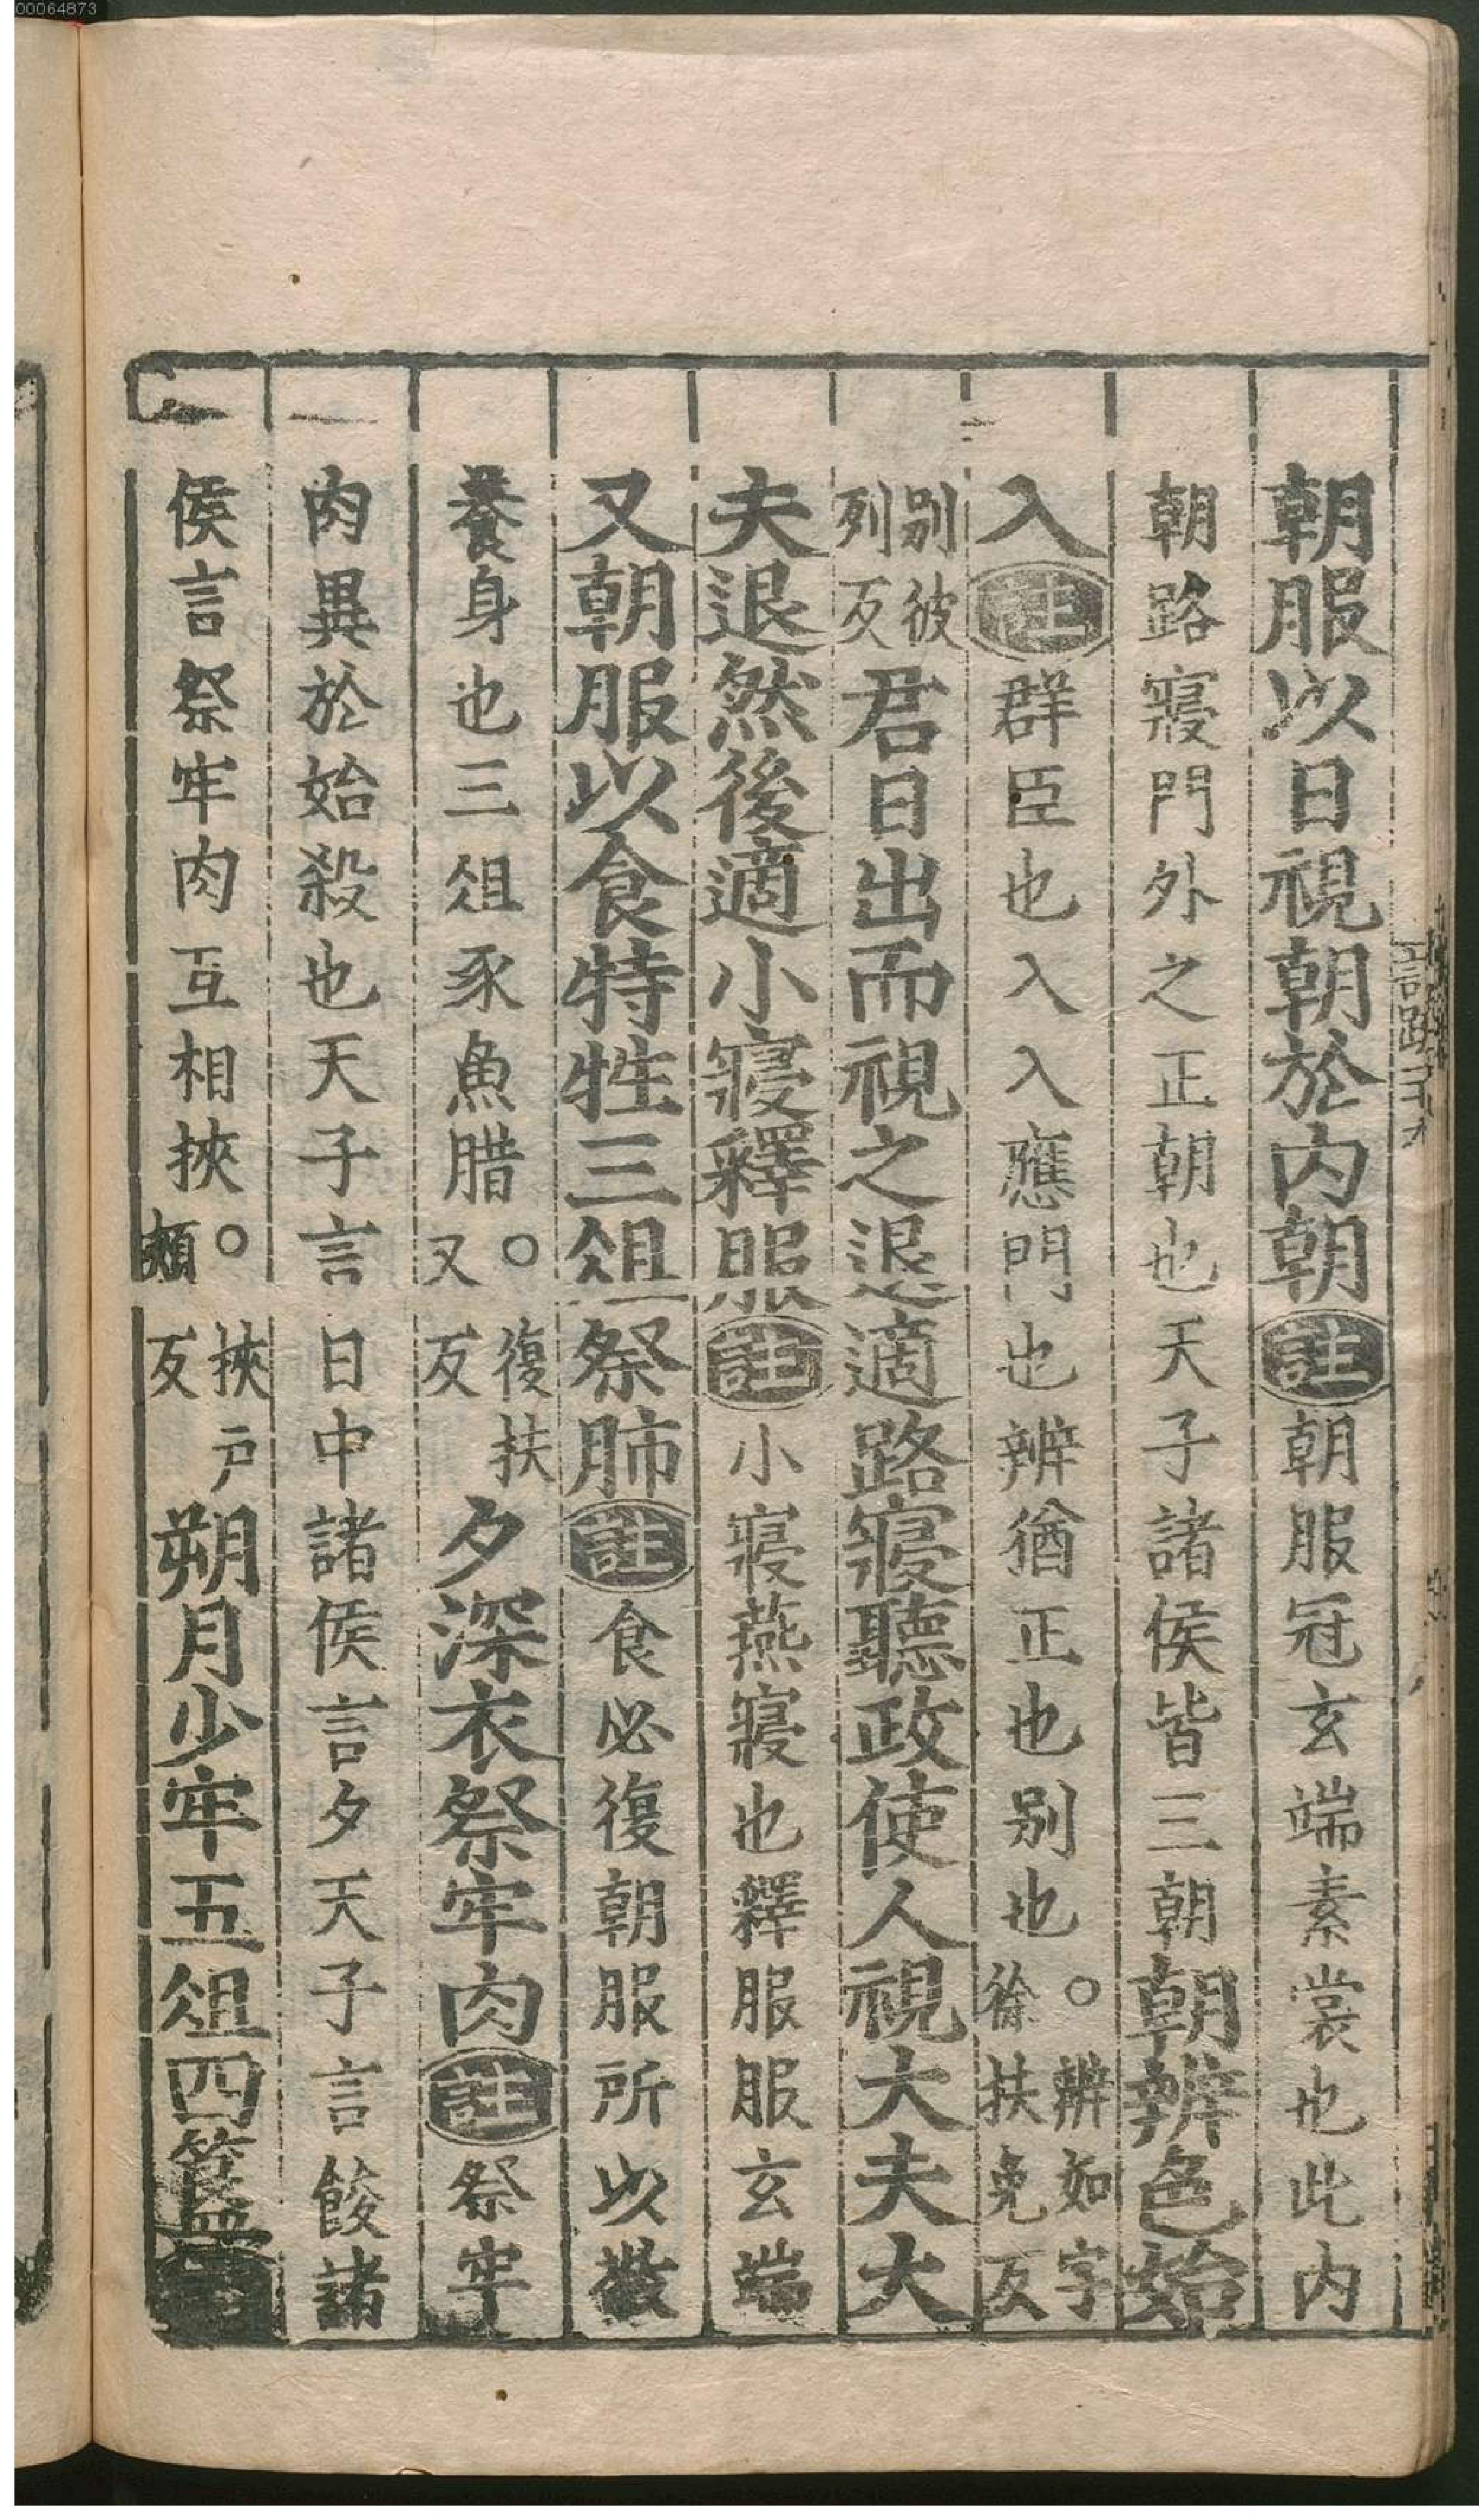 00064873
朝服以日視朝於內朝註朝服冠玄端素裳也此內
朝路寢門外之正朝也天子諸侯皆三朝朝辨色始
入註群臣也入入應門也辨猶正也別也○辨如字徐扶免反
別彼列反君日出而視之退適路寢聽政使人視大夫大
夫退然後適小寢釋服註小寢燕寢也釋服服玄端
又朝服以食特牲三俎祭肺註食必復朝服所以敬
養身也三俎豕魚腊○復扶又反夕深衣祭牢肉註祭牢
肉異於始殺也天子言日中諸侯言夕天子言餕諸
侯言祭牢肉互相挾○挾戶頰反朔月少牢五俎四簋註